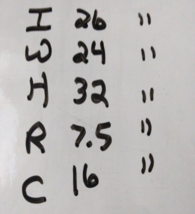 I 26 "
W 24 "
H 32 "
R 7.5 "
C 16 "